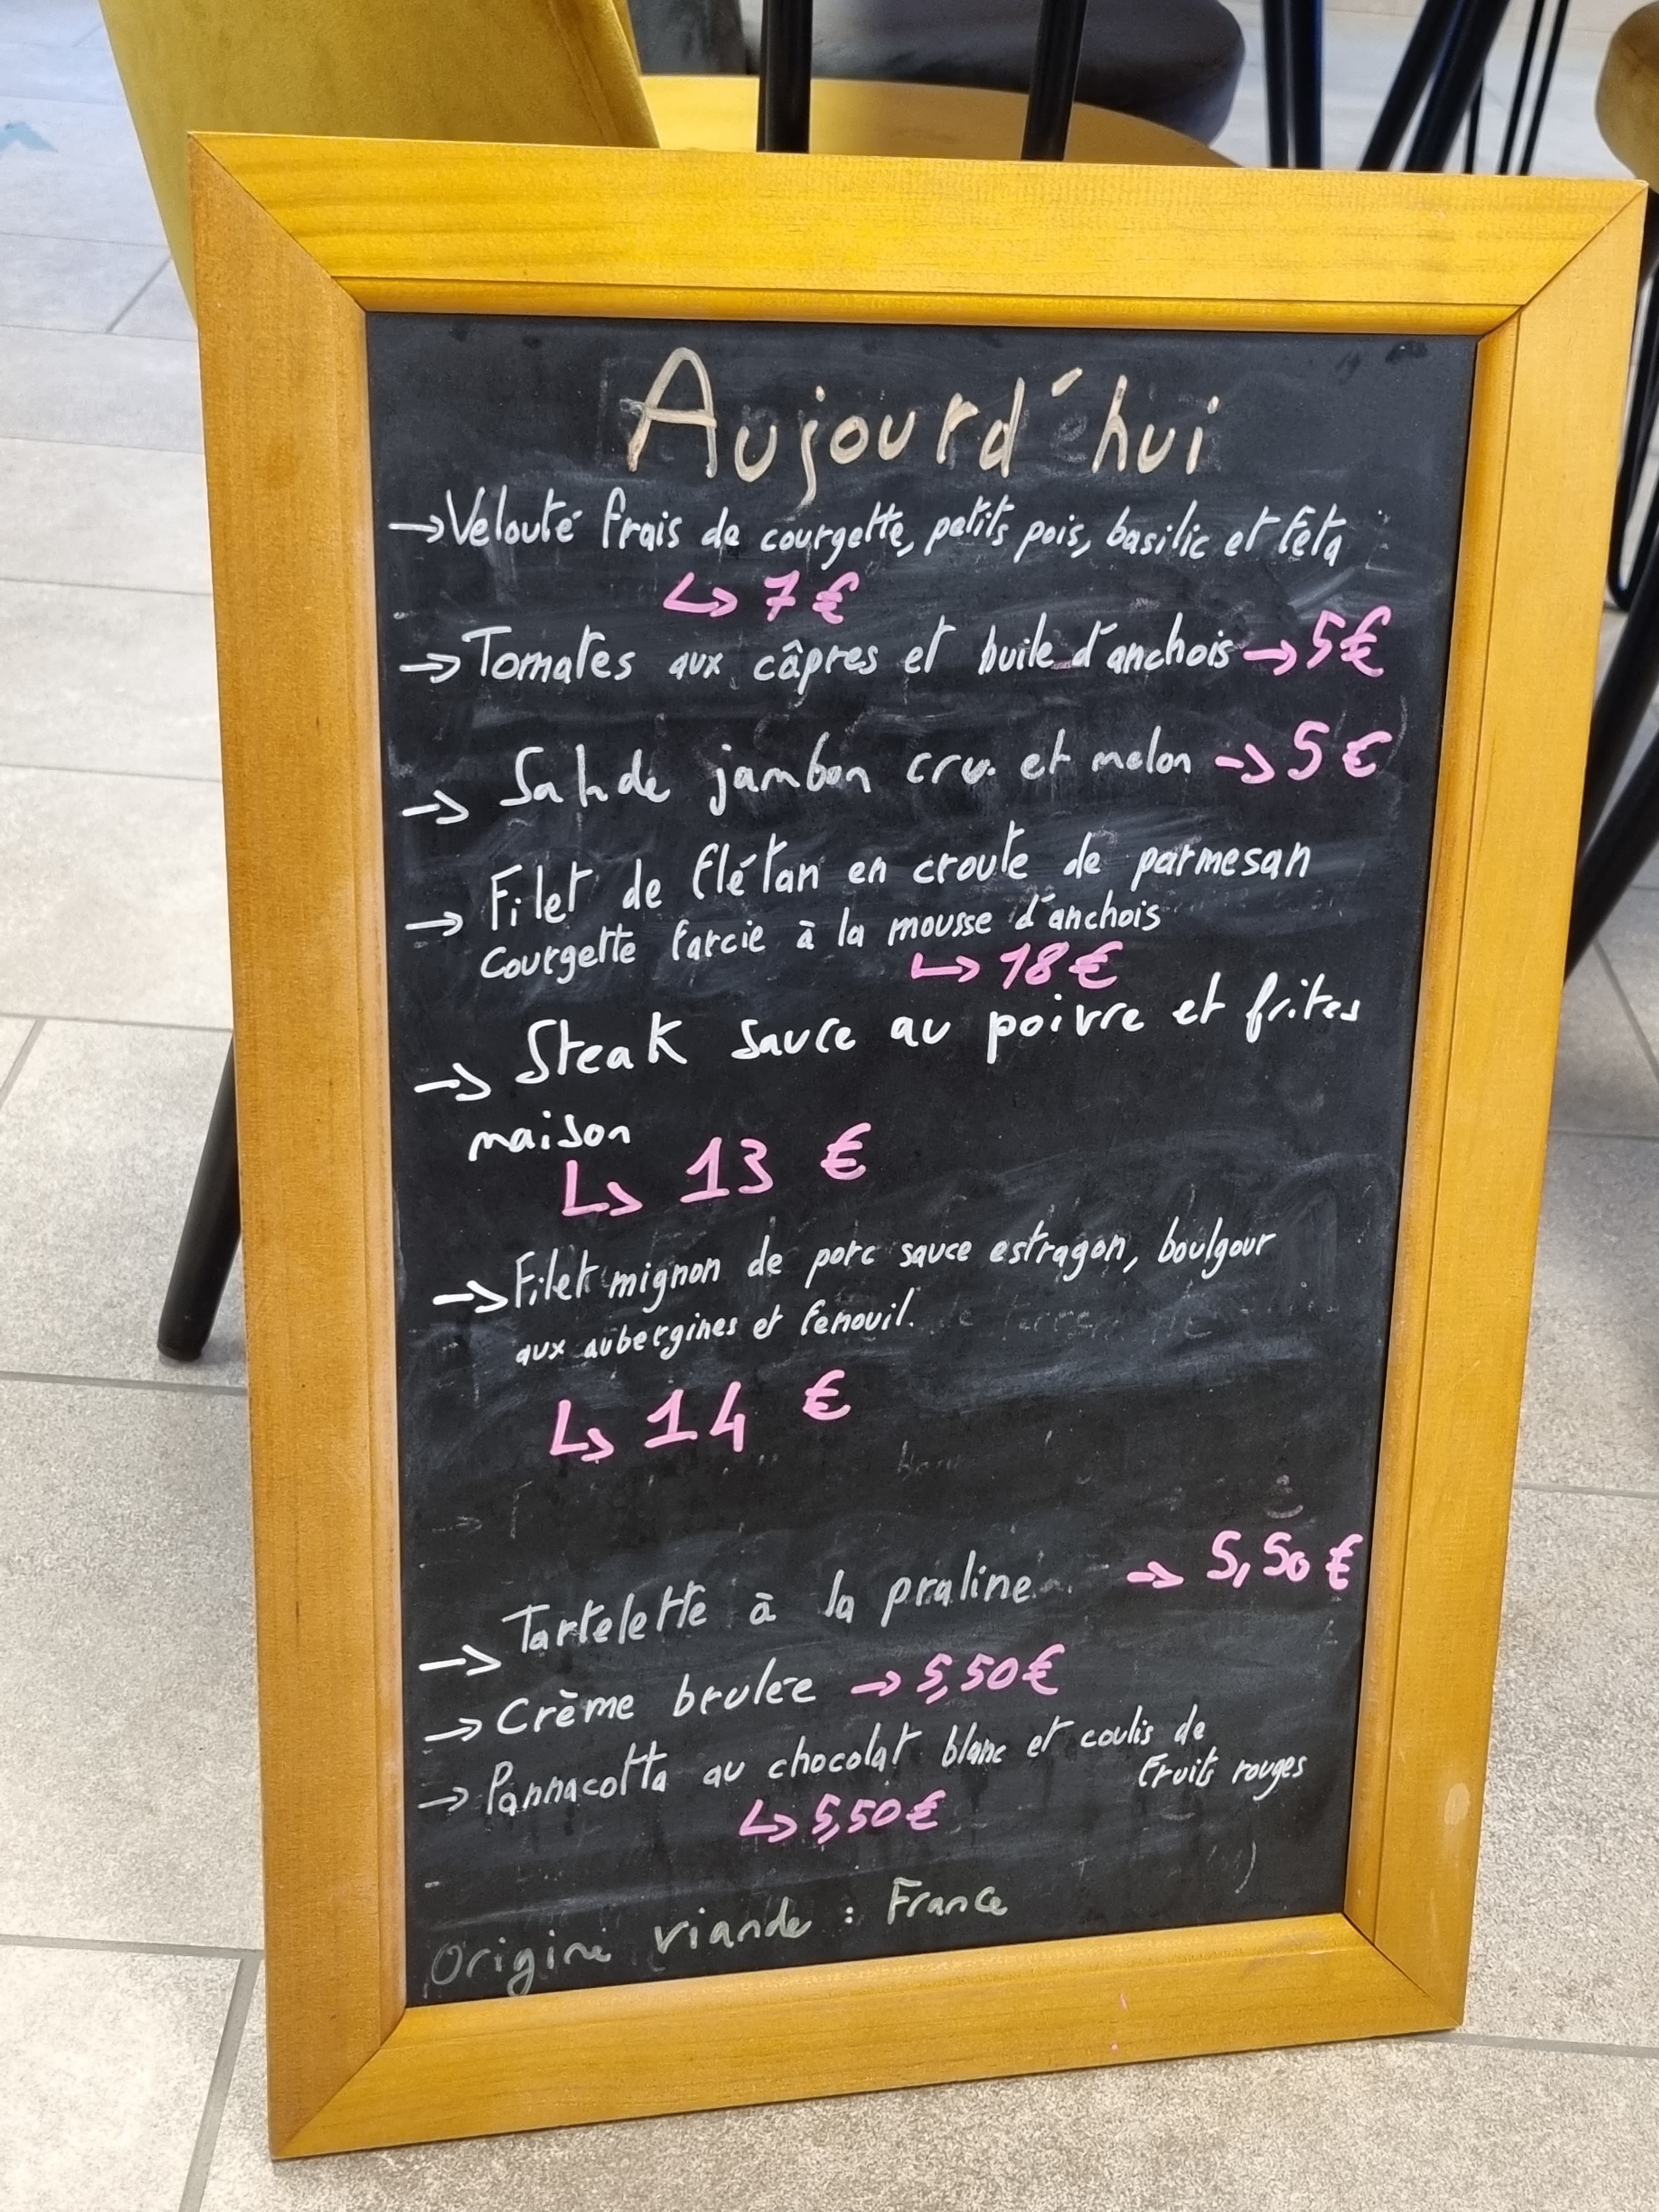 Aujourd'hui
→ Velouté frais de courgette, petits pois, basilic et feta
↳ 7 €
→ Tomates aux câpres et huile d'anchois → 5 €
→ Salade jambon cru et melon → 5 €
→ Filet de flétan en croute de parmesan
courgette farcie à la mousse d'anchois
↳ 18 €
→ Steak sauce au poivre et frites
maison
↳ 13 €
→ Filet mignon de porc sauce estragon, boulgour
aux aubergines et fenouil.
↳ 14 €
→ Tartelette à la praline → 5,50 €
→ Crème brulée → 5,50 €
→ Pannacotta au chocolat blanc et coulis de
fruits rouges
↳ 5,50 €
Origine viande : France